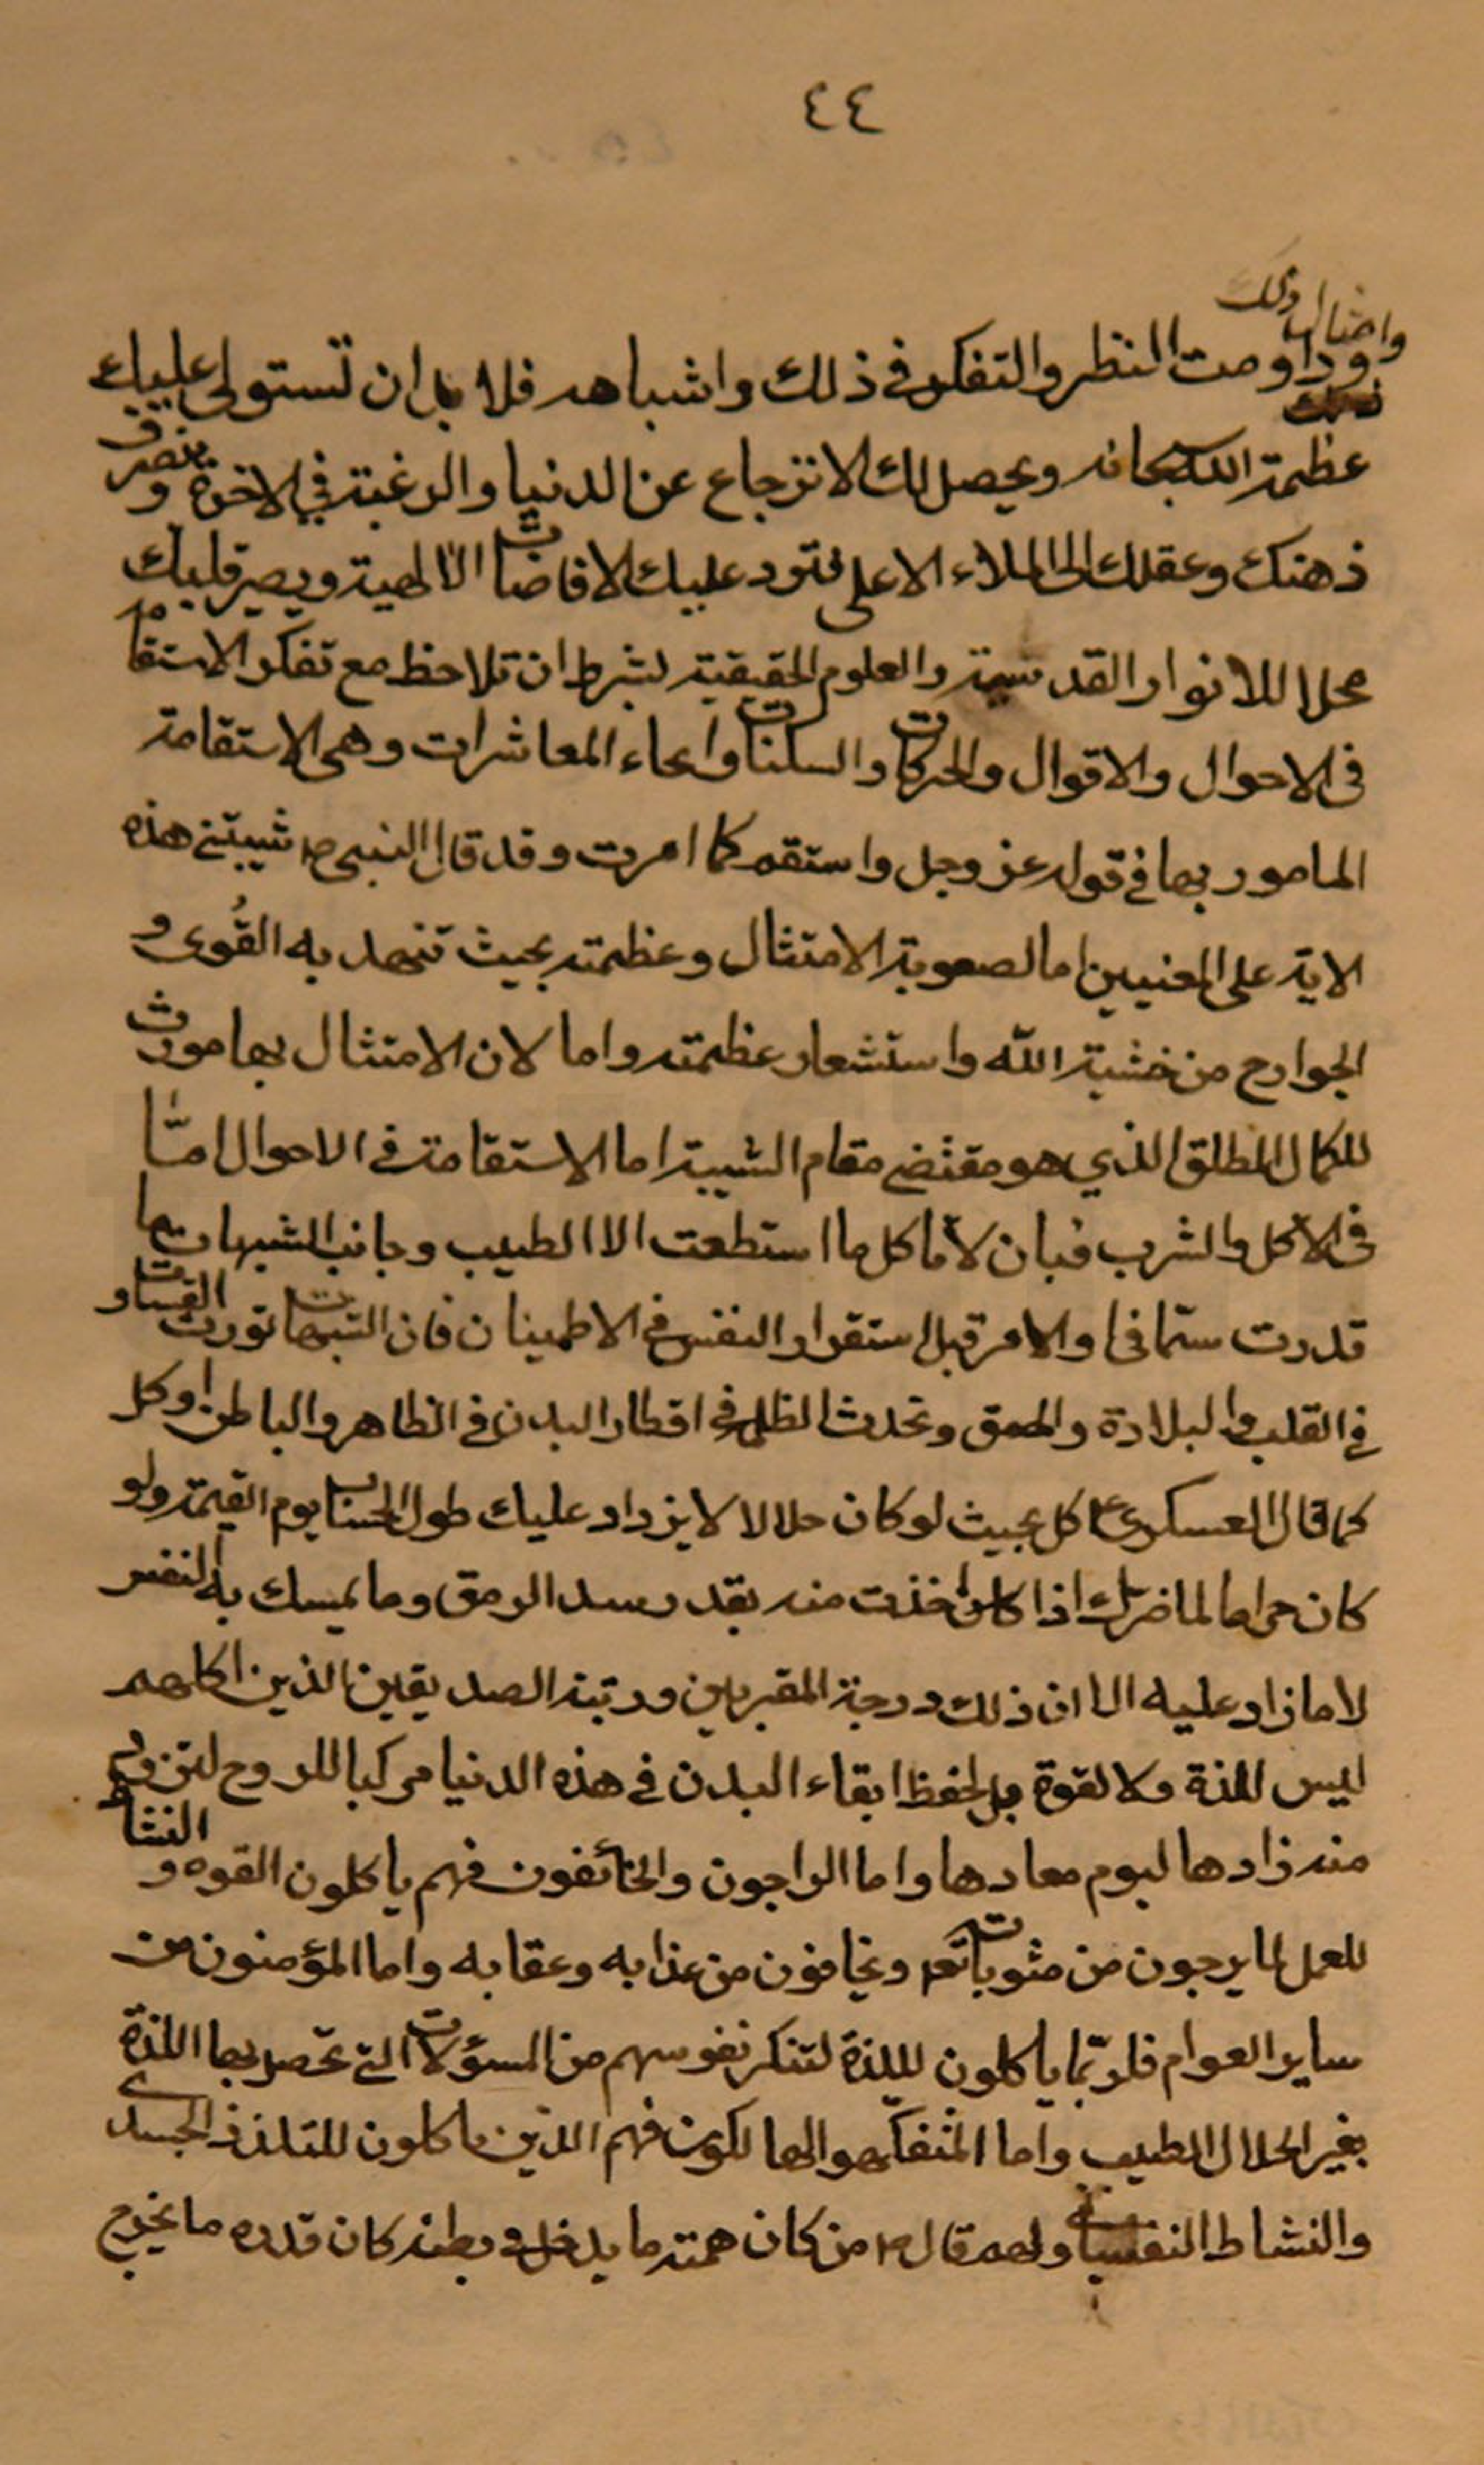 ٤٤
وامثال ذلك
وداومت النظر والتفكر فى ذلك واشباهه فلا بد ان تستولى عليك
عظمة الله سبحانه ويحصل لك الانزجاع عن الدنيا والرغبة في الاخرة وينصرف
ذهنك وعقلك الى الملاء الاعلى فتود عليك الافاضات الالهية ويصير قلبك
محلا للانوار القدسية والعلوم الحقيقية بشرط ان تلاحظ مع تفكر الاستقامة
فى الاحوال والاقوال والحركات والسكنات وانحاء المعاشرات وهى الاستقامة
المامور بها فى قوله عز وجل واستقم كما امرت وقد قال النبى ص شيبتنى هذه
الاية على المعنيين اما لصعوبة الامتثال وعظمته بحيث تنهد به القُوى و
الجوارح من خشية الله واستشعار عظمته واما لان الامتثال بها مورث
للكمال المطلق الذي هو مقتضى مقام الشيبة اما الاستقامة فى الاحوال امّا
فى الاكل والشرب فبان لا تاكل ما استطعت الا الطيب وجانب الشبهات مها
قدرت سيّما فى اوايل الامر قبل استقرار النفس فى الاطمينان فان الشبهات تورث القساوة
فى القلب والبلادة والحمق وتحدث الظلمة فى اقطار البدن فى الظاهر والباطن وكل
كما قال العسكرى ع كل بحيث لو كان حلالا لا يزداد عليك طول الحساب يوم القيمة ولو
كان حراما لما ضرّك اذا كان اخذت منه بقدر سد الرمق وما يمسك به النفس
لا ما زاد عليه الا ان ذلك درجة المقربين ورتبة الصديقين الذين اكلهم
ليس للذة ولا لقوة بل لحفظ ابقاء البدن فى هذه الدنيا مركبا للروح لتزود
منه زادها ليوم معادها واما الراجون والخائفون فهم ياكلون القوه والنشاط
للعمل لما يرجون من مثوباته تع ويخافون من عذابه وعقابه واما المؤمنون من
ساير العوام فلربّما ياكلون لللذة لتنكر نفوسهم من السؤلات التى تحصل بها اللذة
بغير الحلال الطيب واما المتفكهو الهالكون فهم الذين ياكلون للتلذذ الجسدى
والنشاط النفسانية ولهم قال ص من كان همته ما يدخل فى بطنه كان قدره ما يخرج